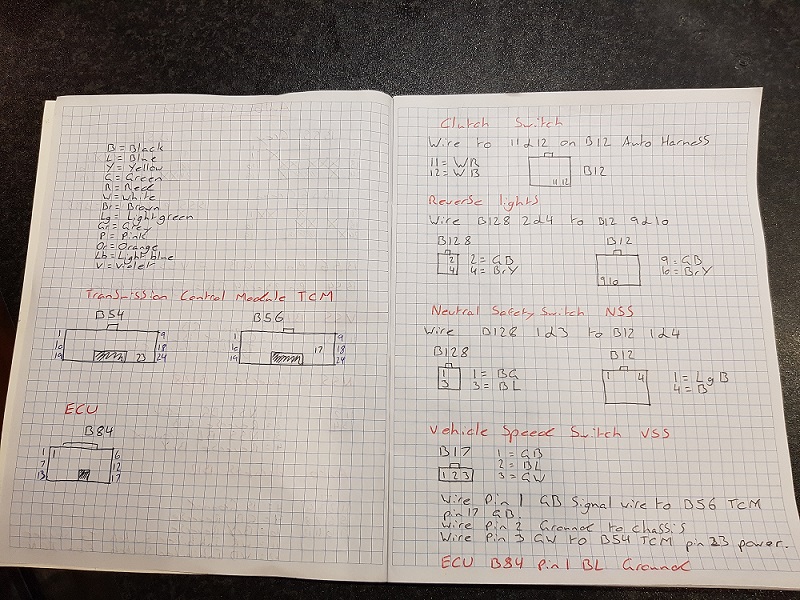 B = Black
L = Blue
Y = Yellow
G = Green
R = Red
W = White
Br = Brown
Lg = Light green
Gr = Grey
P = Pink
Or = Orange
Lb = Light blue
V = Violet
Transmission Control Module TCM
B54
B56
1 9
10 18
19 23 24
1 9
10 17 18
19 24
ECU
B84
1 1 6
7 12
13 17
Clutch Switch
Wire to 11&12 on B12 Auto Harness
11 = WR
12 = WB
11 12
B12
Reverse lights
Wire B128 2&4 to B12 9&10
B128
B12
2
4
2 = GB
4 = BrY
9 10
9 = GB
10 = BrY
Neutral Safety Switch NSS
Wire B128 1&3 to B12 1&4
B128
B12
1
3
1 = BG
3 = BL
1 4
1 = LgB
4 = B
Vehicle Speed Switch VSS
B17
1 2 3
1 = GB
2 = BL
3 = GW
Wire Pin 1 GB Signal wire to B56 TCM
pin 17 GB
Wire pin 2 Ground to chassis
Wire Pin 3 GW to B54 TCM pin 23 power.
ECU B84 Pin 1 BL Ground